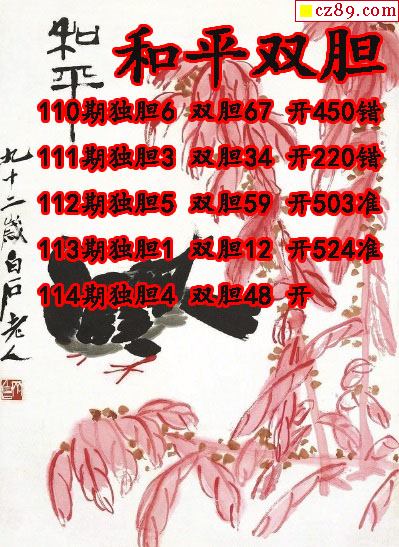 cz89.com
和平双胆
110期独胆6 双胆67 开450错
111期独胆3 双胆34 开220错
112期独胆5 双胆59 开503准
113期独胆1 双胆12 开524准
114期独胆4 双胆48 开
和平
九十二岁白石老人